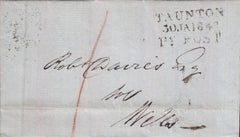 TAUNTON
30JA1840
PY POST
Robt Davies Esq
Wells